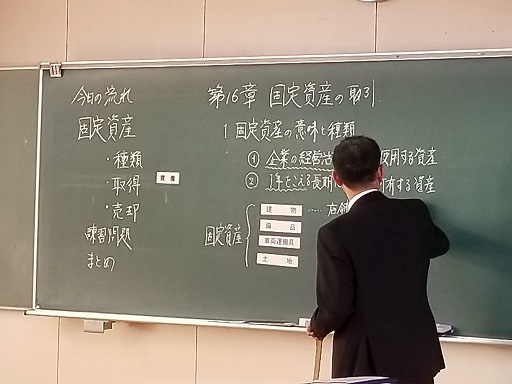 今日の流れ
固定資産
・種類
・取得
・売却
練習問題
まとめ
資産
第16章 固定資産の取引
1 固定資産の意味と種類
① 企業の経営活 使用する資産
② 1年をこえる長期 所有する資産
固定資産
建物 …… 店舗
備品
車両運搬具
土地